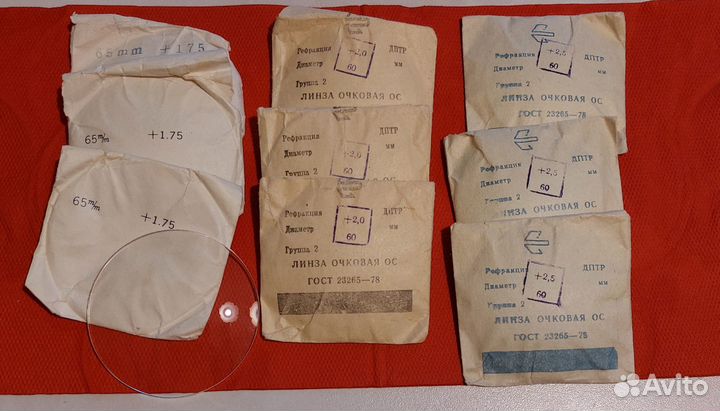 65mm +1.75
65 m/m +1.75
65 m/m +1.75
Рефракция +2,0 ДПТР
Диаметр 60 мм
Группа 2
ЛИНЗА ОЧКОВАЯ ОС
Рефракция ДПТР
Диаметр +2,0 мм
60
Рефракция +2,0 ДПТР
Диаметр 60 мм
Группа 2
ЛИНЗА ОЧКОВАЯ ОС
ГОСТ 23265—78
Рефракция +2,5 ДПТР
Диаметр 60 мм
Группа 2
ЛИНЗА ОЧКОВАЯ ОС
ГОСТ 23265—78
Рефракция +2,5 ДПТР
Диаметр 60 мм
ЛИНЗА ОЧКОВАЯ ОС
Рефракция +2,5 ДПТР
Диаметр 60 мм
Группа 2
ЛИНЗА ОЧКОВАЯ ОС
ГОСТ 23265—78
Avito